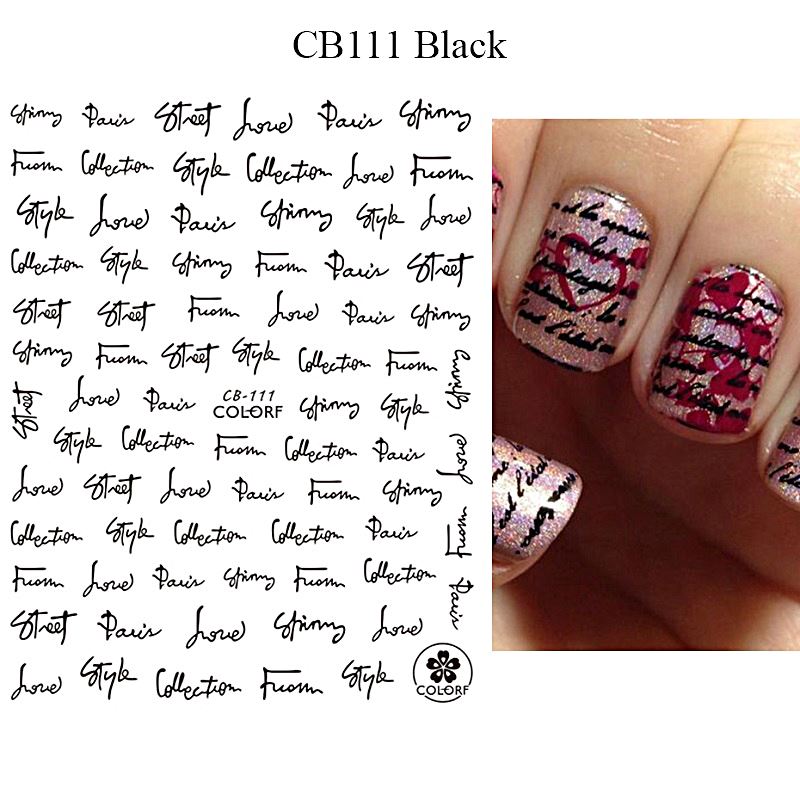 CB111 Black
Skinny Paris Street Love Paris Skinny
From Collection Style Collection Love From
Style Love Paris Skinny Style Love
Collection Style Skinny From Paris Street
Street Street From Love Paris Skinny
Skinny From Street Style Collection From Skinny
Street Love Paris CB-111 COLORF Skinny Style
Style Collection From Collection Paris Love
Love Street Love Paris From Skinny
Collection Style Collection Collection Paris From
From Love Paris Skinny From Collection Paris
Street Paris Love Skinny Love
Love Style Collection From Style COLORF